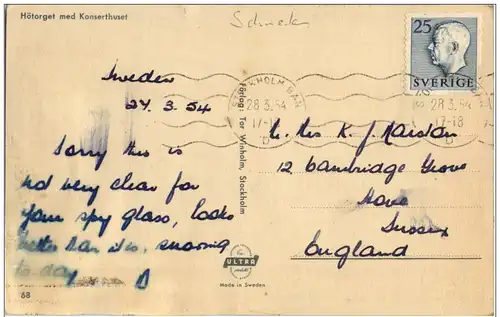 Hötorget med Konserthuset
Sweden
27.3.54
Sorry this is
not very clear for
your spy glass, looks
better than it is, snowing
to day
68
Förlag: Tor Winholm, Stockholm
ULTRA
Made in Sweden
25
SVERIGE
STOCKHOLM BAN
28.3.54
17-18
D
28.3.54
17-18
D
Mrs K. J.
12, Cambridge Grove
Hove
Sussex
England